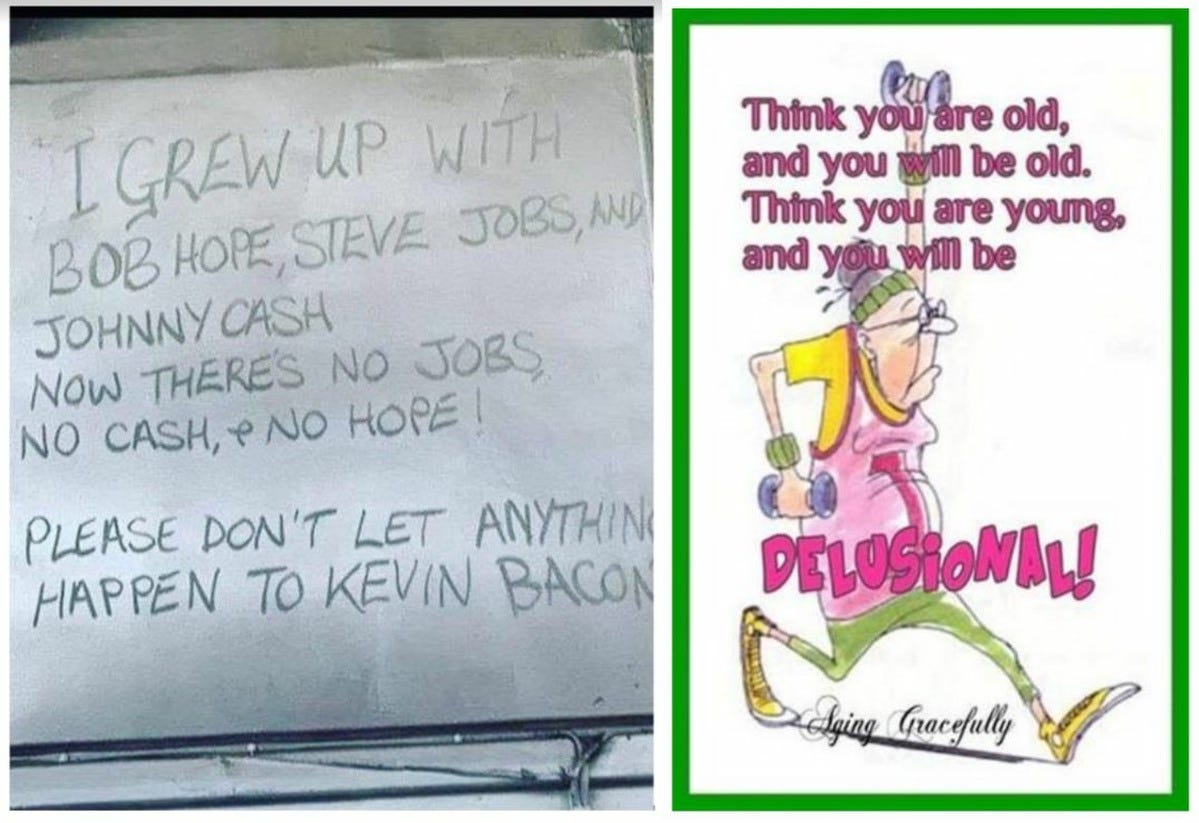 I GREW UP WITH
BOB HOPE, STEVE JOBS, AND
JOHNNY CASH
NOW THERE'S NO JOBS,
NO CASH, & NO HOPE!
PLEASE DON'T LET ANYTHING
HAPPEN TO KEVIN BACON
Think you are old,
and you will be old.
Think you are young,
and you will be
DELUSiONAL!
Aging Gracefully